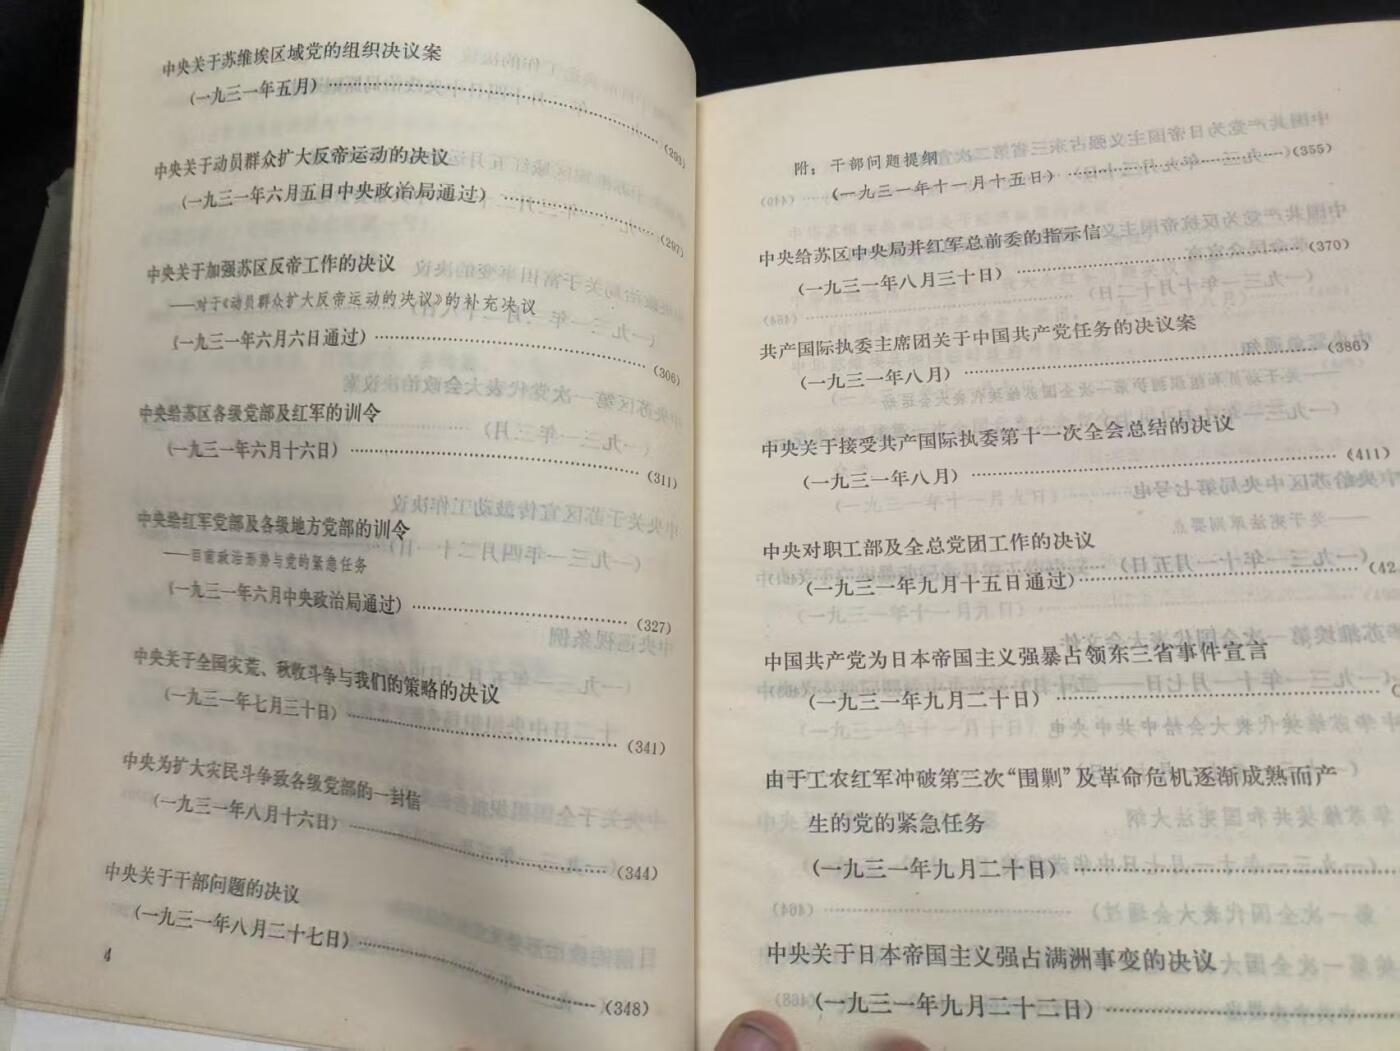 中央关于苏维埃区域党的组织决议案
(一九三一年五月)……(293)
中央关于动员群众扩大反帝运动的决议
(一九三一年六月五日中央政治局通过)……(297)
中央关于加强苏区反帝工作的决议
——对于《动员群众扩大反帝运动的决议》的补充决议
(一九三一年六月六日通过)……(306)
中央给苏区各级党部及红军的训令
(一九三一年六月十六日)……(311)
中央给红军党部及各级地方党部的训令
——目前政治形势与党的紧急任务
(一九三一年六月中央政治局通过)……(327)
中央关于全国灾荒、秋收斗争与我们的策略的决议
(一九三一年七月三十日)……(341)
中央为扩大灾民斗争致各级党部的一封信
(一九三一年八月十六日)……(344)
中央关于干部问题的决议
(一九三一年八月二十七日)……(348)
4
附：干部问题提纲
(一九三一年十一月十五日)……(355)
中央给苏区中央局并红军总前委的指示信
(一九三一年八月三十日)……(370)
共产国际执委主席团关于中国共产党任务的决议案
(一九三一年八月)……(386)
中央关于接受共产国际执委第十一次全会总结的决议
(一九三一年八月)……(411)
中央对职工部及全总党团工作的决议
(一九三一年九月十五日通过)……(42
中国共产党为日本帝国主义强暴占领东三省事件宣言
(一九三一年九月二十日)……(
由于工农红军冲破第三次“围剿”及革命危机逐渐成熟而产
生的党的紧急任务
(一九三一年九月二十日)……
中央关于日本帝国主义强占满洲事变的决议
(一九三一年九月二十二日)……